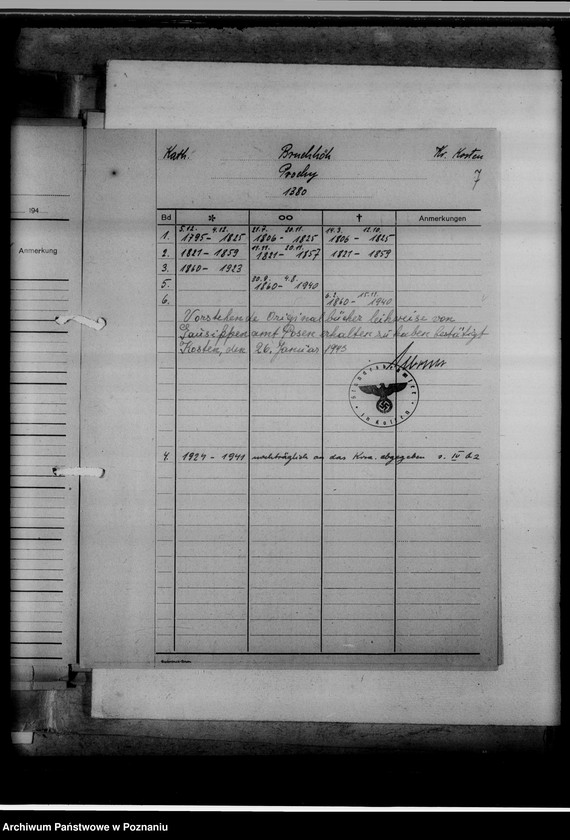 Kath. Bruchhöh Kr. Kosten
Prochy 7
1380
194
Anmerkung
Bd * ∞ † Anmerkungen
5.12. 4.12. 21.7. 20.11. 14.3. 12.10.
1. 1795- 1825 1806- 1825 1806- 1825
11.11. 20.11.
2. 1821-1859 1821-1857 1821-1859
3. 1860-1923
20.9. 4.8.
5. 1860- 1940
6.2. 15.11.
6. 1860- 1940
Vorstehende Originalbücher leihweise von
Gausippenamt Posen erhalten zu haben bestätigt
Kosten, den 26. Januar 1943
Standesamt
in Kosten
4. 1924-1941 nachträglich an das Kom. abgegeben s. IV b 2
Archiwum Państwowe w Poznaniu